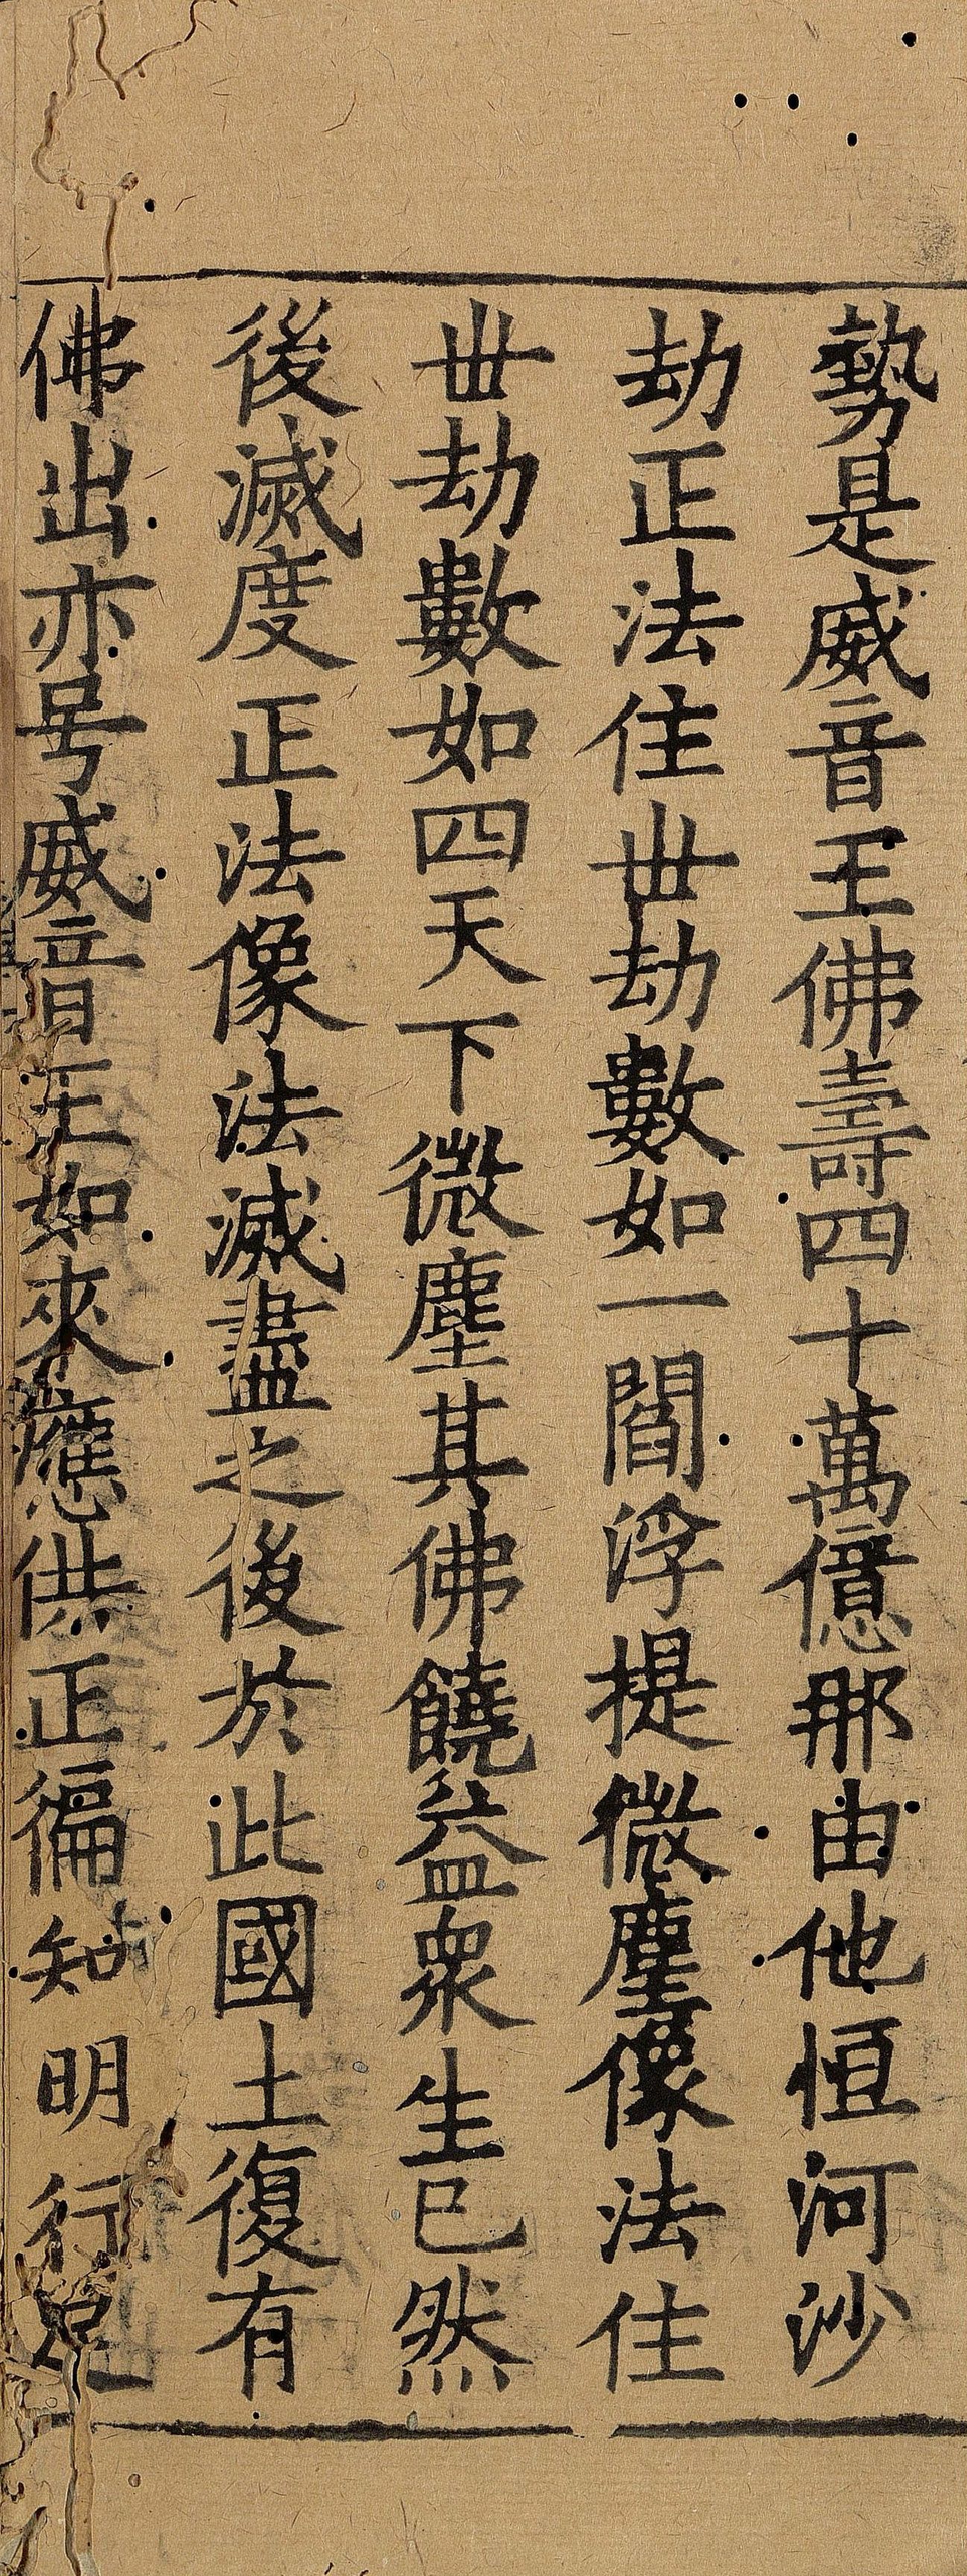 勢是威音王佛壽四十萬億那由他恒河沙
劫正法住丗劫數如一閻浮提微塵像法住
丗劫數如四天下微塵其佛饒益衆生已然
後滅度正法像法滅盡之後於此國土復有
佛出亦号威音王如來應供正徧知明行足